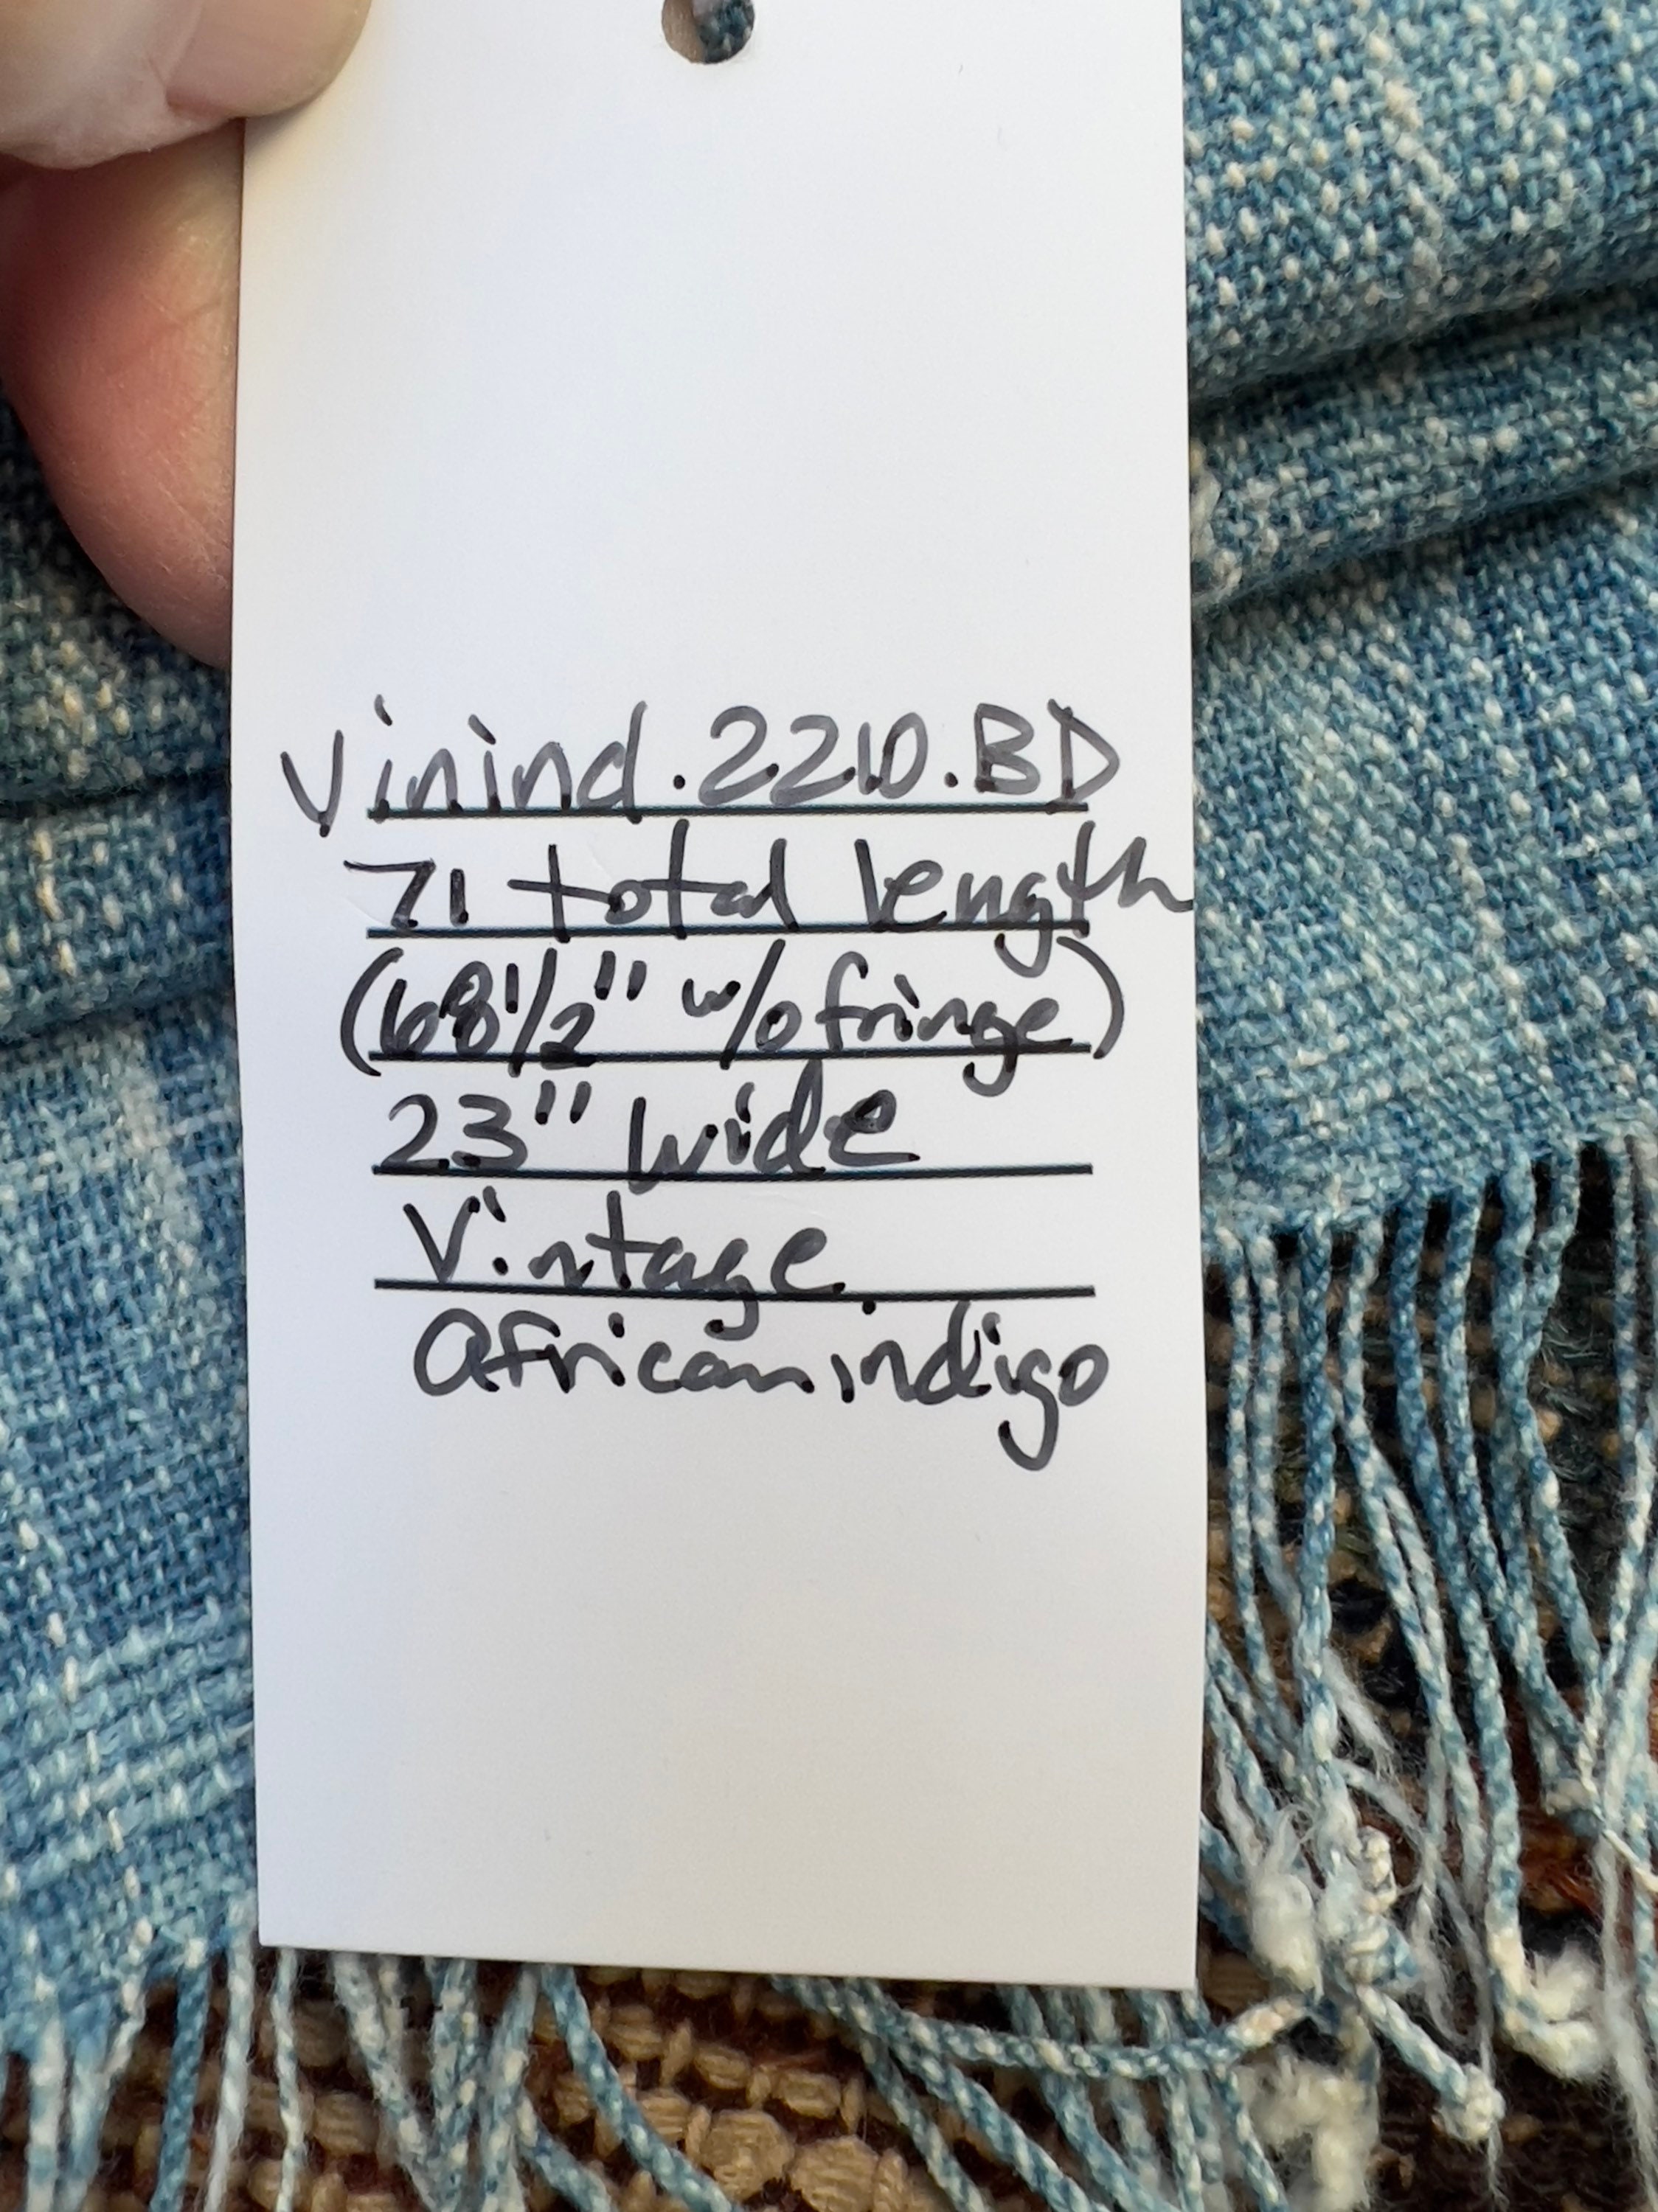 Vinind.2210.BD
71 total length
(68 1/2" w/o fringe)
23" wide
Vintage
African indigo